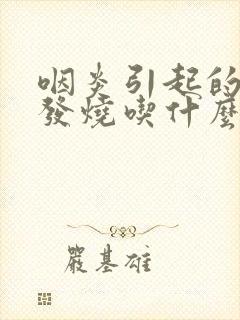 咽炎引起的
發燒喫什麼
嚴基雄